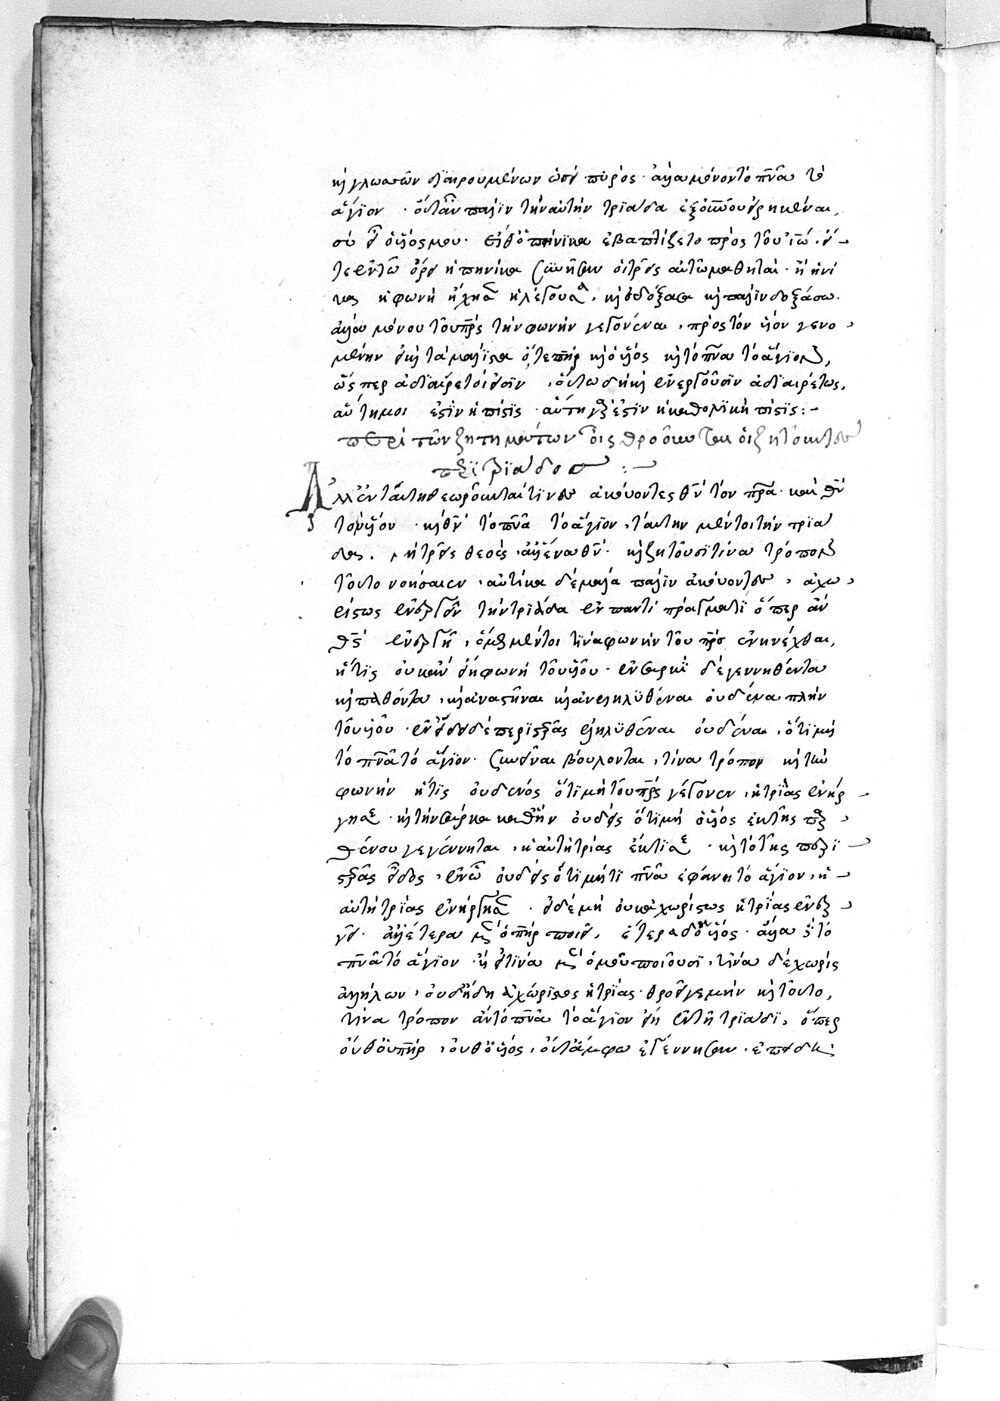 κ(αὶ) γλωσσῶν διαιρουμένων ὡσεὶ πυρὸς· ἀλλὰ μόνον τὸ πν(εῦμ)α τὸ
ἅγιον· οὔτ' ἂν πάλιν τὴν αὐτὴν τριάδα εἰρηκέναι,
σὺ εἶ ὁ υἱός μου· εἶθ' ὁπηνίκα ἐβαπτίζετο πρὸς τοῦ ἰω(άννου)· οὔ
τε ἐν τῷ ὄρει ὁπηνίκα ἦσαν οἱ τρεῖς αὐτῷ μαθηταὶ· ἢ ἡνί
κα ἡ φωνὴ ἤχησε λέγουσα· κ(αὶ) ἐδόξασα κ(αὶ) πάλιν δοξάσω·
ἀλλὰ μόνου τοῦ π(ατ)ρ(ὸ)ς τὴν φωνὴν γεγονέναι, πρὸς τὸν υἱὸν γενο
μένην εἰ κ(αὶ) τὰ μάλιστα ὅ, τε π(ατ)ὴρ κ(αὶ) ὁ υἱὸς κ(αὶ) τὸ πν(εῦμ)α τὸ ἅγιον,
ὥσπερ ἀδιαίρετοί εἰσιν, οὕτω δὴ κ(αὶ) ἐνεργοῦσιν ἀδιαιρέτως,
αὕτη μοι ἐστὶν ἡ πίστις· αὕτη γάρ ἐστιν ἡ καθολικὴ πίστις:-
περὶ τῶν ζητημάτων οἷς θροοῦνται οἱ ζητοῦντες
περὶ τριάδος:-
Ἀλλ' ἐν ταύτῃ θεωροῦνται τινὲς ἀκούοντες θ(εὸ)ν τὸν π(ατέ)ρα· καὶ θ(εὸ)ν
τὸν υἱὸν· κ(αὶ) θ(εὸ)ν τὸ πν(εῦμ)α τὸ ἅγιον, ταύτην μέντοι τὴν τριά
δα, μὴ τρεῖς θεοὺς, ἀλλ' ἕνα θ(εό)ν· κ(αὶ) ζητοῦσι τίνα τρόπον
τοῦτο νοήσαιεν, αὐτίκα δὲ μάλα πάλιν ἀκούοντες, ἀχω
ρίστως ἐνεργεῖν τὴν τριάδα ἐν παντὶ πράγματι ὅπερ ἂν
θ(εὸ)ς ἐνεργῇ, ὅμως μέντοι τινὰ φωνὴν τοῦ π(ατ)ρ(ὸ)ς ἐνηνέχθαι,
ἥτις οὐκ ἂν εἴη φωνὴ τοῦ υἱοῦ· ἐν σαρκὶ δὲ γεννηθέντα
κ(αὶ) παθόντα, κ(αὶ) ἀναστῆναι κ(αὶ) ἀνεληλυθέναι οὐδένα πλὴν
τοῦ υἱοῦ· ἐν εἴδει δὲ περιστερᾶς ἐληλυθέναι οὐδένα, ὅτι μὴ
τὸ πν(εῦμ)α τὸ ἅγιον· βούλονται, τίνα τρόπον κ(αὶ) τὴν
φωνὴν ἥτις οὐδενὸς ὅτι μὴ τοῦ π(ατ)ρ(ὸ)ς γέγονεν, ἡ τριὰς ἐνήρ
γησε· κ(αὶ) τὴν σάρκα καθ' ἣν οὐδεὶς ὅτι μὴ ὁ υἱὸς ἐκ τῆς παρ
θένου γεγέννηται, ἡ αὐτὴ τριὰς ἔκτισε· κ(αὶ) τὸ τῆς περι
στερᾶς εἶδος, ἐν ᾧ οὐδεὶς ὅτι μή τι πν(εῦμ)α ἐφάνη τὸ ἅγιον, ἡ
αὐτὴ τριὰς ἐνήργησε· εἰ δὲ μὴ οὐκ ἀχωρίστως ἡ τριὰς ἐνερ
γεῖ· ἀλλ' ἕτερα μ(ὲν) ὁ π(ατ)ὴρ ποιεῖ, ἕτερα δ' ὁ υἱὸς· ἄλλα δὲ τὸ
πν(εῦμ)α τὸ ἅγιον· ἢ εἴ τινα μ(ὲν) ὁμοῦ ποιοῦσι, τινὰ δὲ χωρὶς
ἀλλήλων, οὐδ' ἤδη ἀχώριστος ἡ τριὰς· θροεῖ γε μὴν κ(αὶ) τοῦτο,
τίνα τρόπον ἂν τὸ πν(εῦμ)α τὸ ἅγιον εἴη ἐν τῇ τριάδι, ὅπερ
οὔθ' ὁ π(ατ)ὴρ, οὔθ' ὁ υἱὸς, οὔτ' ἄμφω ἐγέννησαν· ἐπειδὴ